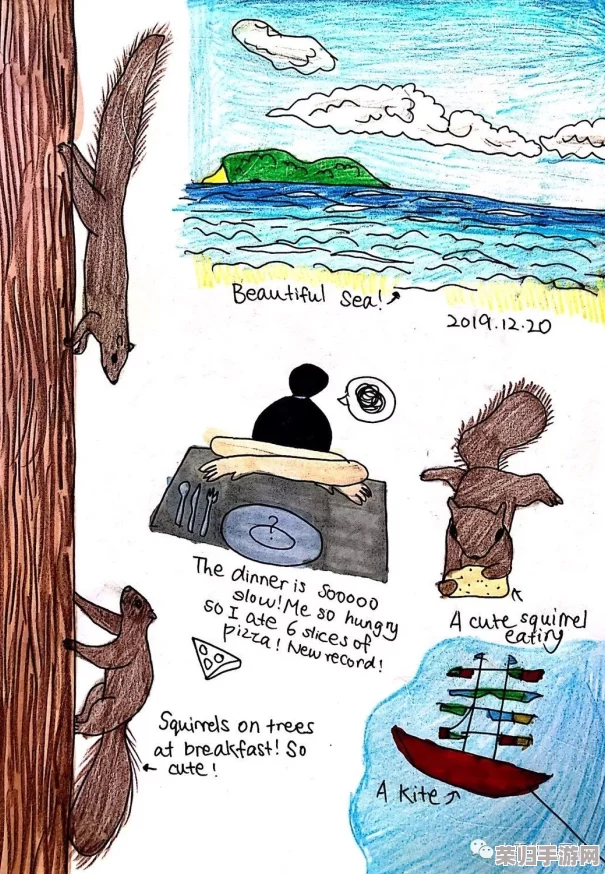 Beautiful Sea!
2019.12.20
The dinner is Sooooo
slow! Me so hungry
so I ate 6 slices of
pizza! New record!
A cute squirrel
eating
Squirrels on trees
at breakfast! So
cute!
A kite
荣归手游网